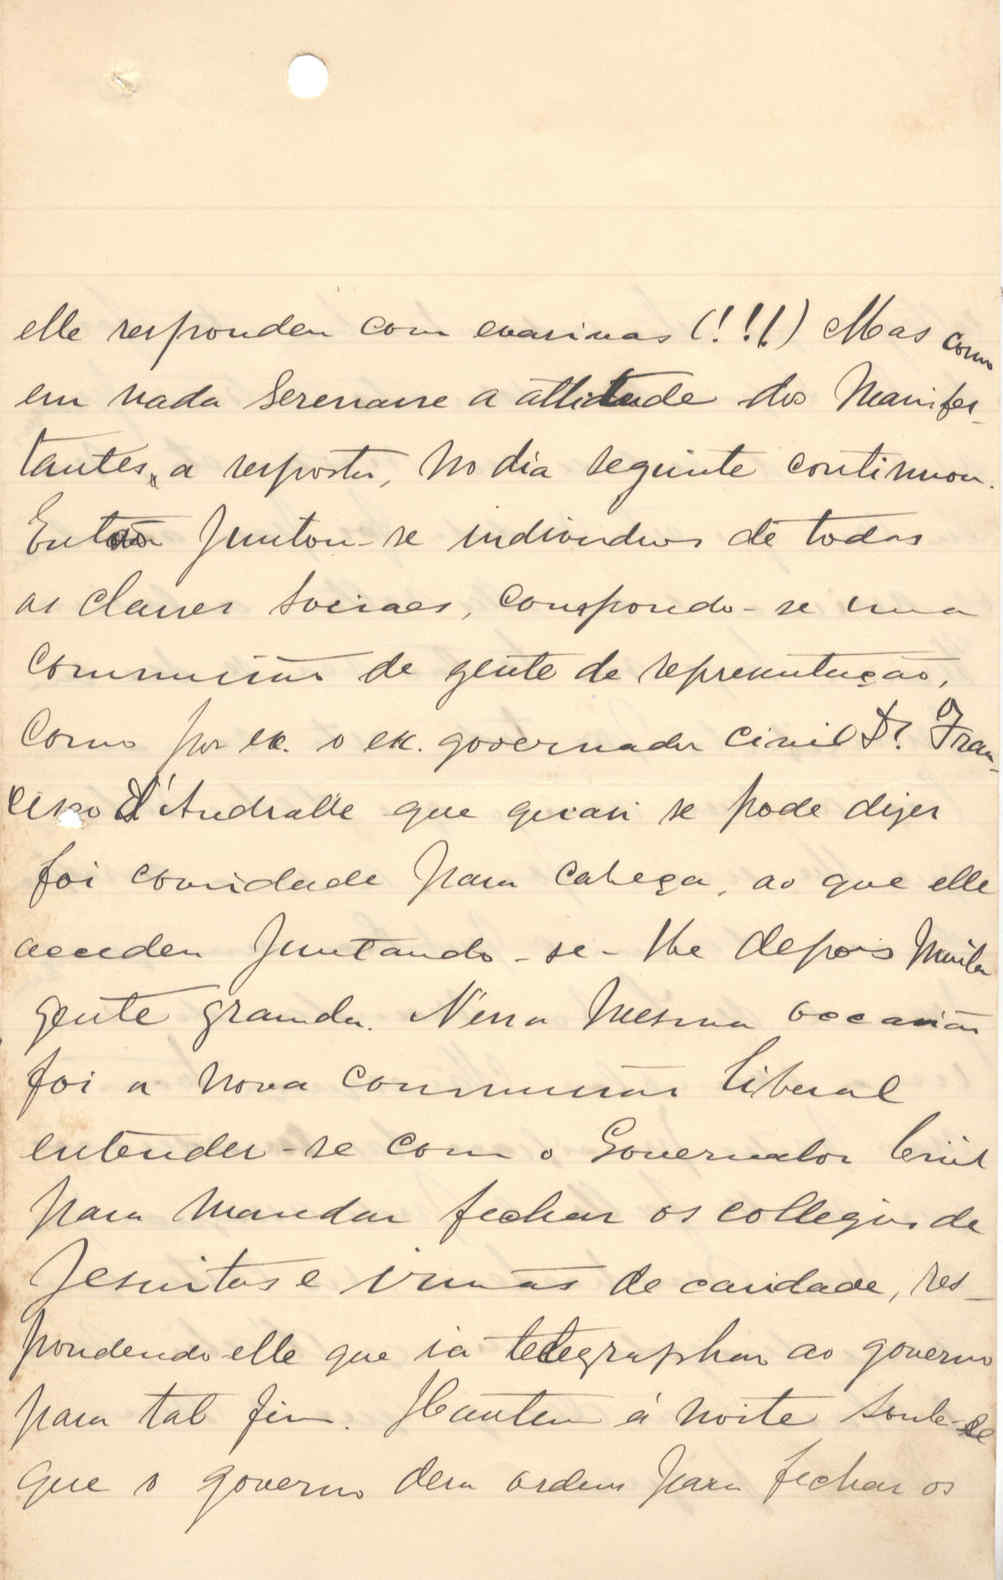 elle respondeu com evasivas (!!!) Mas como
em nada serenasse a attitude dos manifes-
tantes, a resposta, no dia seguinte continuou.
Então juntou-se individuos de todas
as classes sociaes, compondo-se uma
commissão de gente de representação,
como por ex. o ex. governador civil Dr. Fran-
cisco d'Andrade que quasi se pode dizer
foi convidado para cabeça, ao que elle
accedeu juntando-se-lhe depois muita
gente grauda. N'essa mesma occasião
foi a nova commissão liberal
entender-se com o Governador Civil
para mandar fechar os collegios de
Jesuitas e irmãs de caridade, res-
pondendo elle que ia telegraphar ao governo
para tal fim. Hontem á noite soube-se
que o governo dera ordem para fechar os